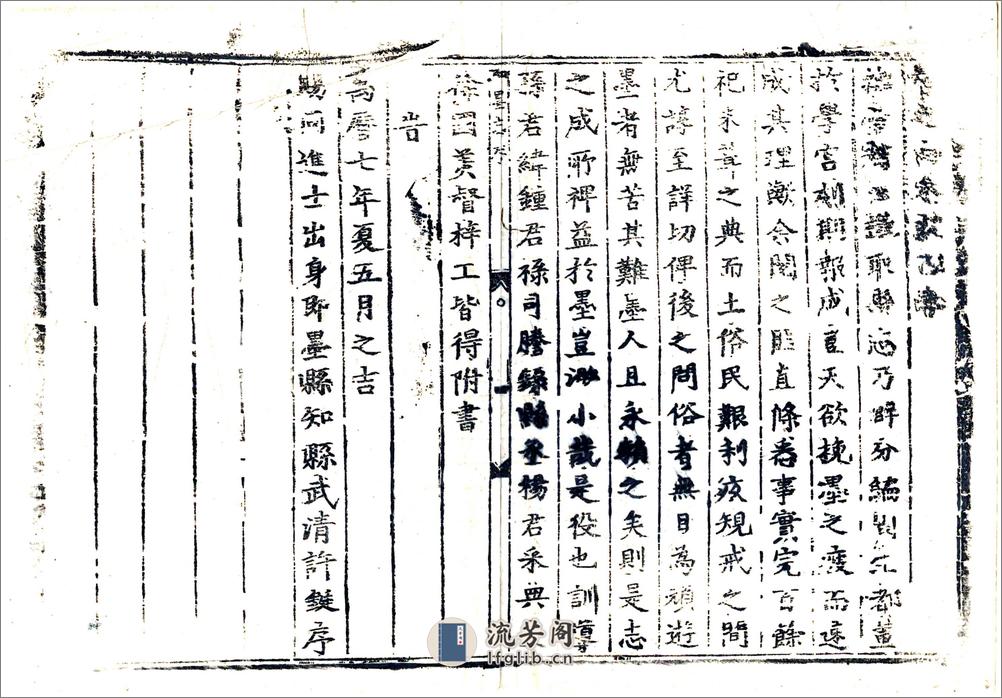 謹職縣治乃分編都董
於學宮刻期報成豈天欲挽墨之疲而速
成其理歟令閱之匪直條悉事實完百餘
祀未葺之典而土俗民艱利疚規戒之間
尤諄至詳切俾後之問俗者無目為頑遊
墨者無苦其難墨人且永賴之矣則是志
之成所裨益於墨豈渺小哉是役也訓導
孫君緯鍾君祿司謄錄縣丞楊君采典
徐國美督梓工皆得附書
旹
萬曆七年夏五月之吉
賜同進士出身即墨縣知縣武清許鋌序
流芳阁
lfglib.cn